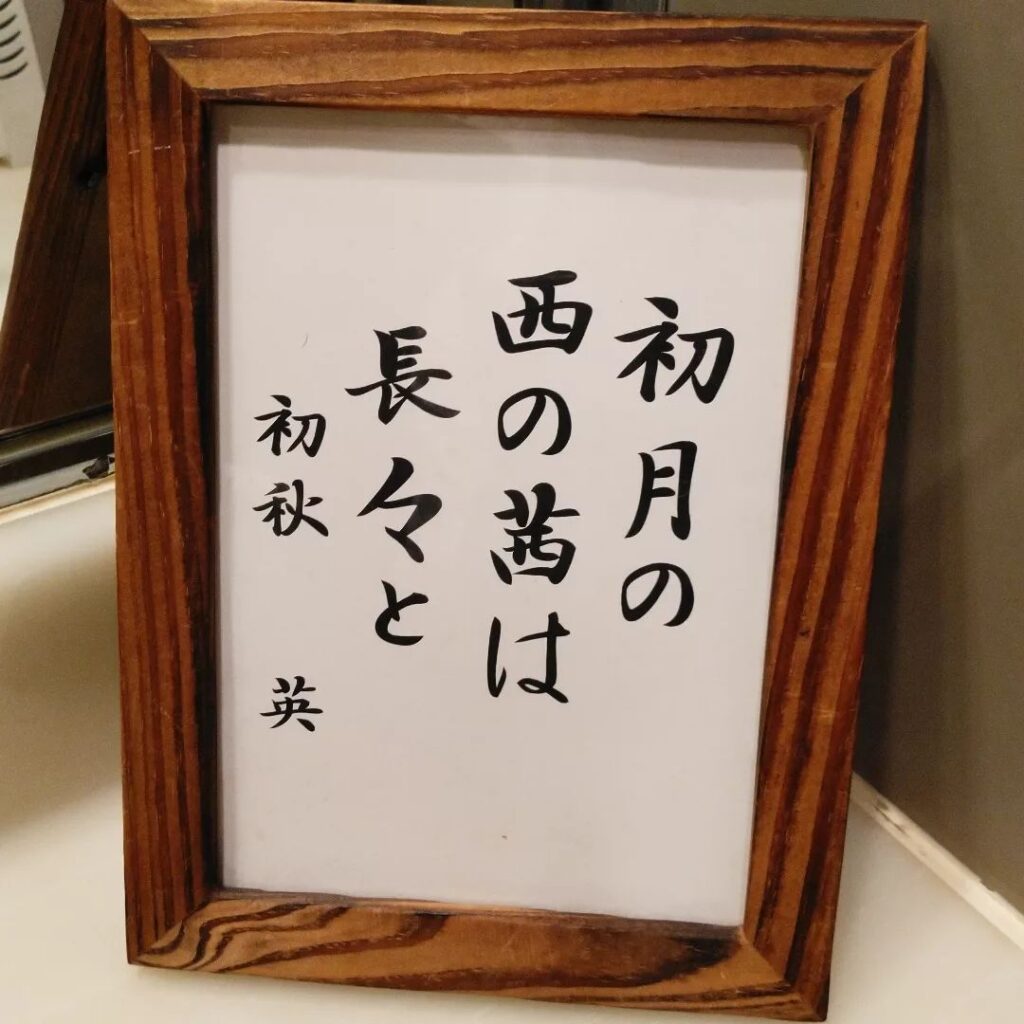 初月の
西の茜は
長々と
初秋　英